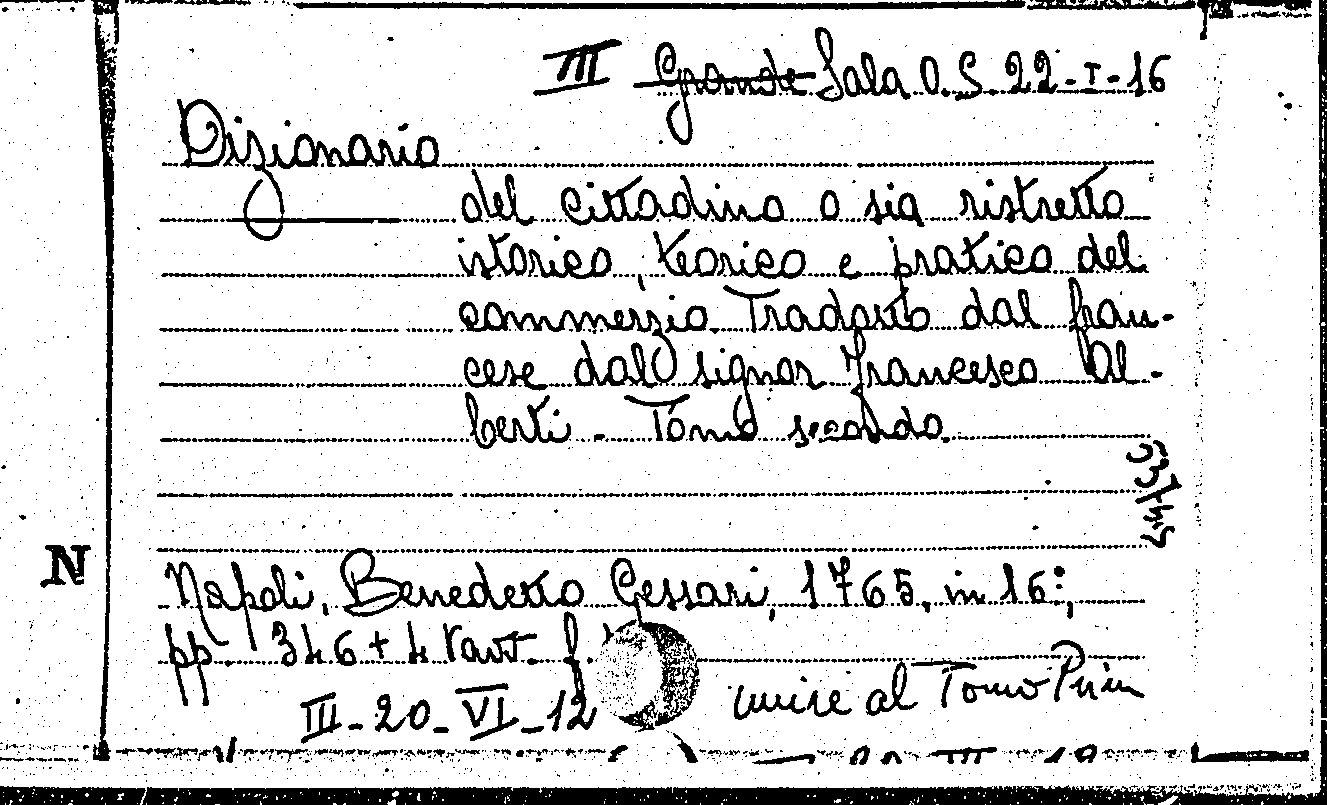 III Grande Sala O.S. 22-I-16
Dizionario
del cittadino o sia ristretto
istorico, teorico e pratico del
commerzio. Tradotto dal fran-
cese dal signor Francesco Al-
berti - Tomo secondo.
N
Napoli, Benedetto Gessari, 1765, in 16:,
pp. 346 + 4
unire al Tomo Prim
III-20-VI-12